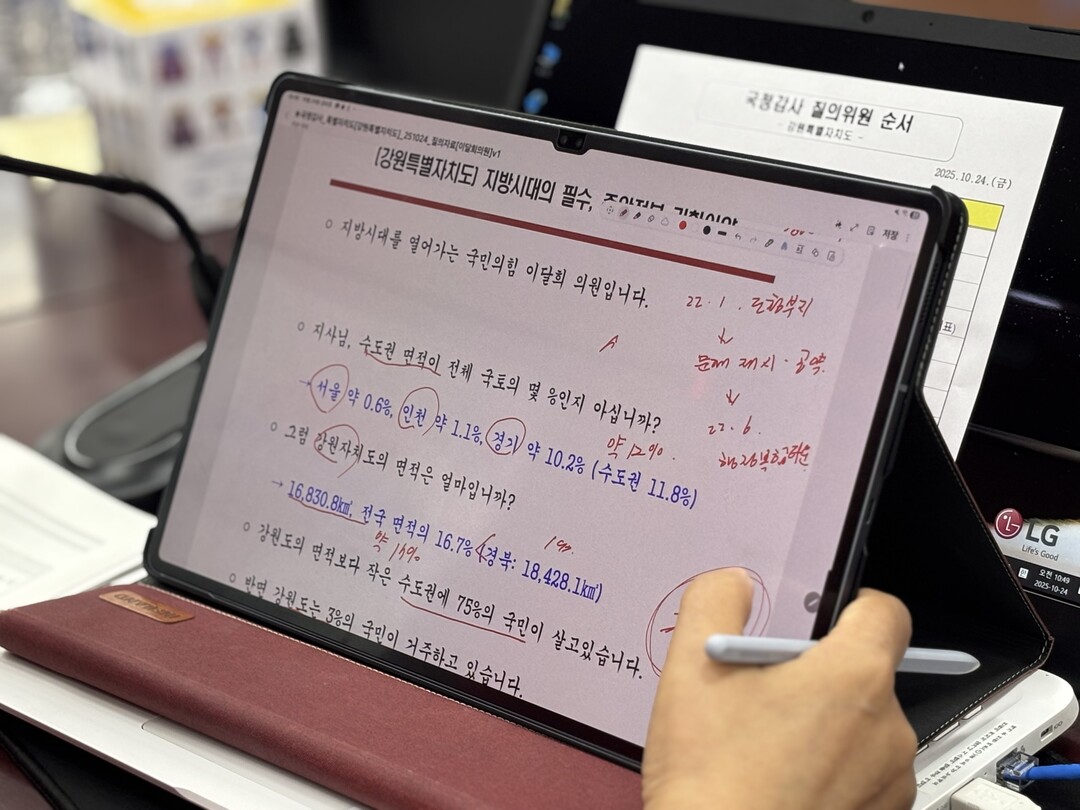 ★국정감사_특별자치도[강원특별자치도]_251024_질의자료[이달희의원]v1
[강원특별자치도] 지방시대의 필수,
저장
○ 지방시대를 열어가는 국민의힘 이달희 의원입니다.
○ 지사님, 수도권 면적이 전체 국토의 몇 %인지 아십니까?
→ 서울 약 0.6%, 인천 약 1.1%, 경기 약 10.2% (수도권 11.8%)
약 12%.
○ 그럼 강원자치도의 면적은 얼마입니까?
→ 16,830.8㎢, 전국 면적의 16.7% (경북: 18,428.1㎢)
약 17%
○ 강원도의 면적보다 작은 수도권에 75%의 국민이 살고있습니다.
○ 반면 강원도는 3%의 국민이 거주하고 있습니다.
22. 1.
↓
공약
↓
22. 6.
국정감사 질의위원 순서
- 강원특별자치도 -
2025.10.24.(금)
LG
Life's Good
오전 10:49
2025-10-24